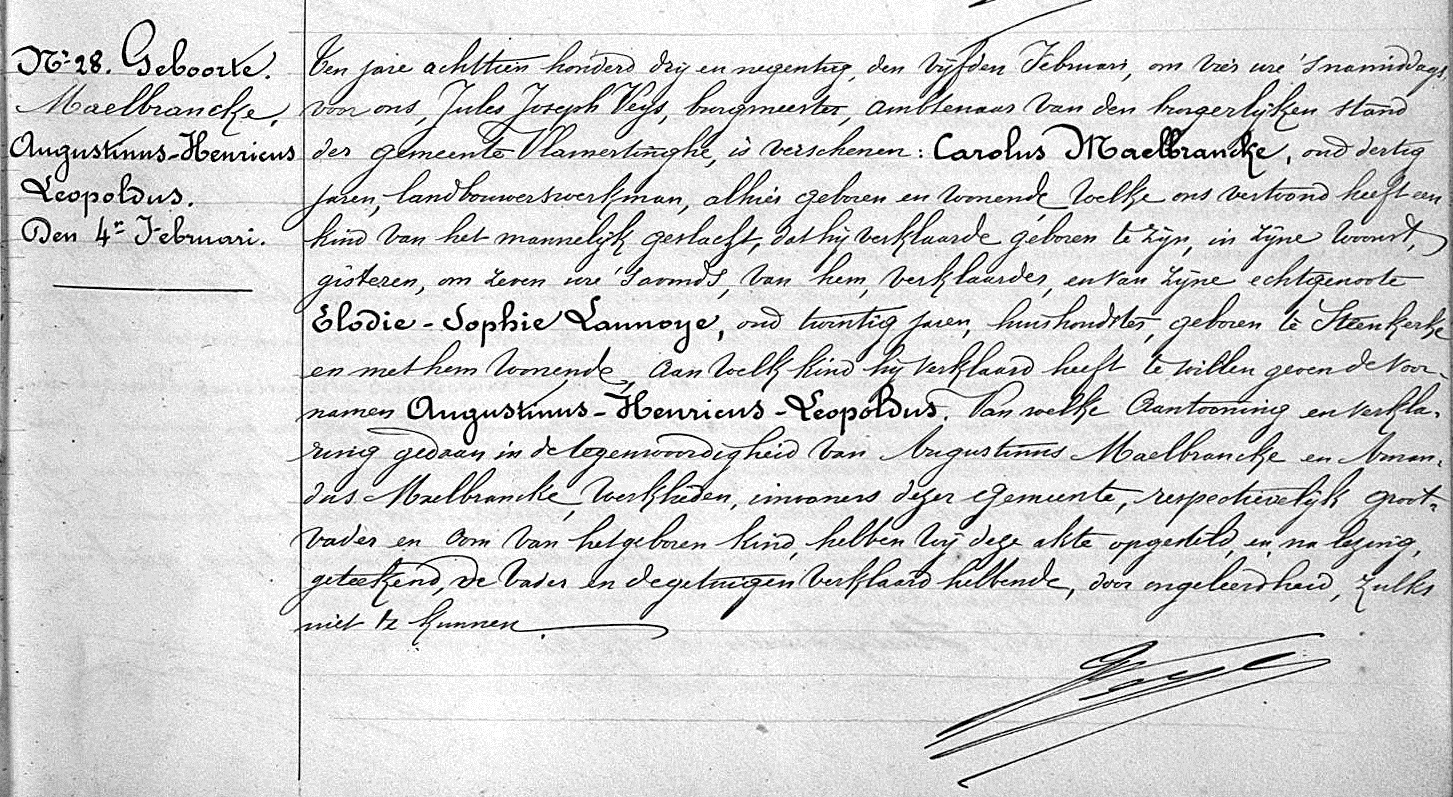 Nr 28. Geboorte.
Maelbrancke,
Augustinus-Henricus
Leopoldus.
Den 4n Februari.
Ten jare achttien honderd drij en negentig, den vijfden Februari, om vier ure 's namiddags,
voor ons, Jules Joseph Veys, burgmeester, ambtenaar van den burgerlijken stand
der gemeente Vlamertinghe, is verschenen: Carolus Maelbrancke, oud dertig
jaren, landbouwerswerkman, alhier geboren en wonende, welke ons vertoond heeft een
kind van het mannelijk geslacht, dat hij verklaarde geboren te zijn, in zijne woonst,
gisteren, om zeven ure 's avonds, van hem, verklaarder, en van zijne echtgenoote
Elodie-Sophie Lannoye, oud twintig jaren, huishoudster, geboren te Steenkerke
en met hem wonende, aan welk kind hij verklaard heeft te willen geven de voor-
namen Augustinus-Henricus-Leopoldus. Van welke aantooning en verkla-
ring gedaan in de tegenwoordigheid van Augustinus Maelbrancke en Aman-
dus Maelbrancke, werklieden, inwoners dezer gemeente, respectievelijk groot-
vader en oom van het geboren kind, hebben wij deze akte opgesteld, en, na lezing,
geteekend, de vader en de getuigen verklaard hebbende, door ongeleerdheid, zulks
niet te kunnen.